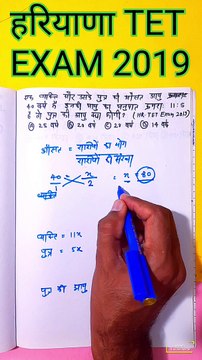 हरियाणा TET
EXAM 2019
एक व्यक्ति और उसके पुत्र की औसत आयु
40 वर्ष है इनकी आयु का अनुपात क्रमशः 11:5
है तो पुत्र की आयु क्या होगी? (HR TET Exam 2019)
Ⓐ 25 वर्ष Ⓑ 20 वर्ष Ⓒ 27 वर्ष Ⓓ 14 वर्ष
औसत = राशियों का योग
राशियों की संख्या
40 x = x 80
1 2
व्यक्ति = 11x
पुत्र = 5x
पुत्र की आयु